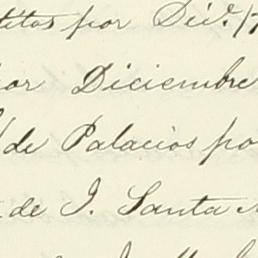 por Dic.e
por Diciembre
de Palacios po
de J. Santa